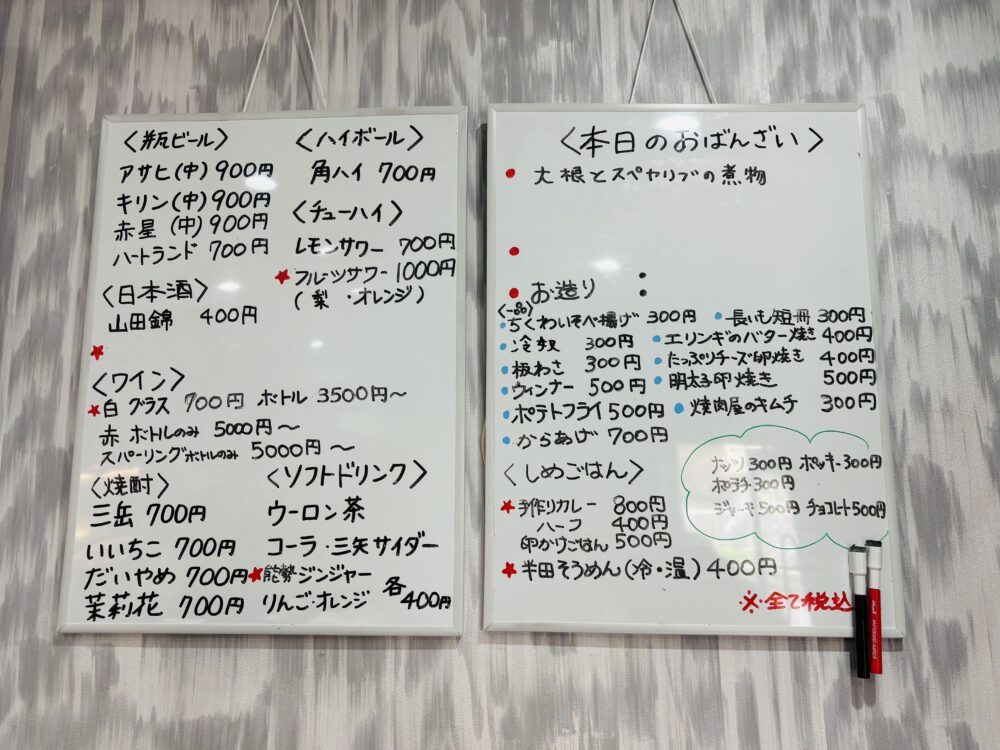 〈瓶ビール〉
アサヒ(中) 900円
キリン(中) 900円
赤星 (中) 900円
ハートランド 700円
〈日本酒〉
山田錦 400円
★
〈ワイン〉
★白 グラス 700円 ボトル 3500円〜
赤 ボトルのみ 5000円〜
スパーリングボトルのみ 5000円〜
〈焼酎〉
三岳 700円
いいちこ 700円
だいやめ 700円
茉莉花 700円
〈ハイボール〉
角ハイ 700円
〈チューハイ〉
レモンサワー 700円
★フルーツサワー 1000円
(梨 ・オレンジ)
〈ソフトドリンク〉
ウーロン茶
コーラ・三矢サイダー
★能勢ジンジャー
りんご・オレンジ 各400円
〈本日のおばんざい〉
● 大根とスペヤリブの煮物
●
● お造り :
〈一品〉
●ちくわいそべ揚げ 300円
●冷奴 300円
●板わさ 300円
●ウィンナー 500円
●ポテトフライ 500円
●からあげ 700円
●長いも短冊 300円
●エリンギのバター焼き 400円
●たっぷりチーズ卵焼き 400円
●明太子卵焼き 500円
●焼肉屋のキムチ 300円
〈しめごはん〉
★手作りカレー 800円
ハーフ 400円
卵かけごはん 500円
★半田そうめん(冷・温) 400円
ナッツ 300円 ポッキー300円
ポテチ 300円
ジャーキ 500円 チョコレート 500円
※全て税込